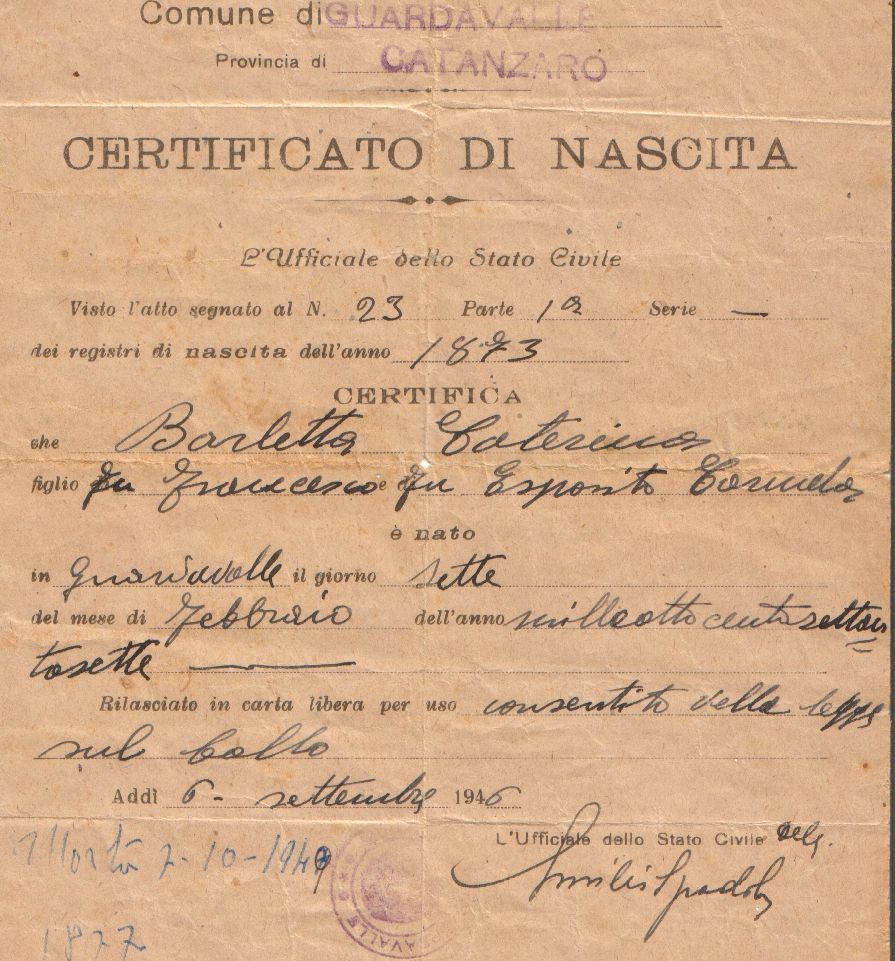 Comune di GUARDAVALLE
Provincia di CATANZARO
CERTIFICATO DI NASCITA
L'Ufficiale dello Stato Civile
Visto l'atto segnato al N. 23 Parte 1a Serie —
dei registri di nascita dell'anno 1873
CERTIFICA
che Barletta Caterina
figlio fu Francesco e di fu Esposito Carmela
è nato
in Guardavalle il giorno sette
del mese di Febbraio dell'anno milleottocentosettan
tasette
Rilasciato in carta libera per uso consentito dalla legge
sul bollo
Addì 6 - settembre 1946
L'Ufficiale dello Stato Civile Del.
Morta 7-10-1949
1877